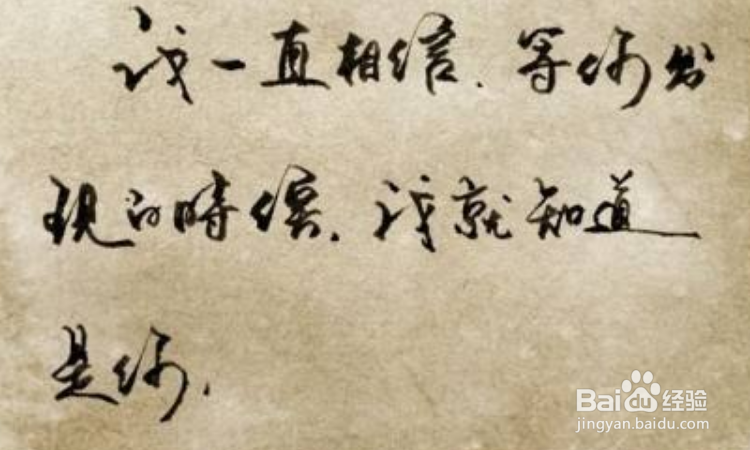 我一直相信、等你出
现的時候、我就知道
是你、
Bai du 经验
jingyan.baidu.com